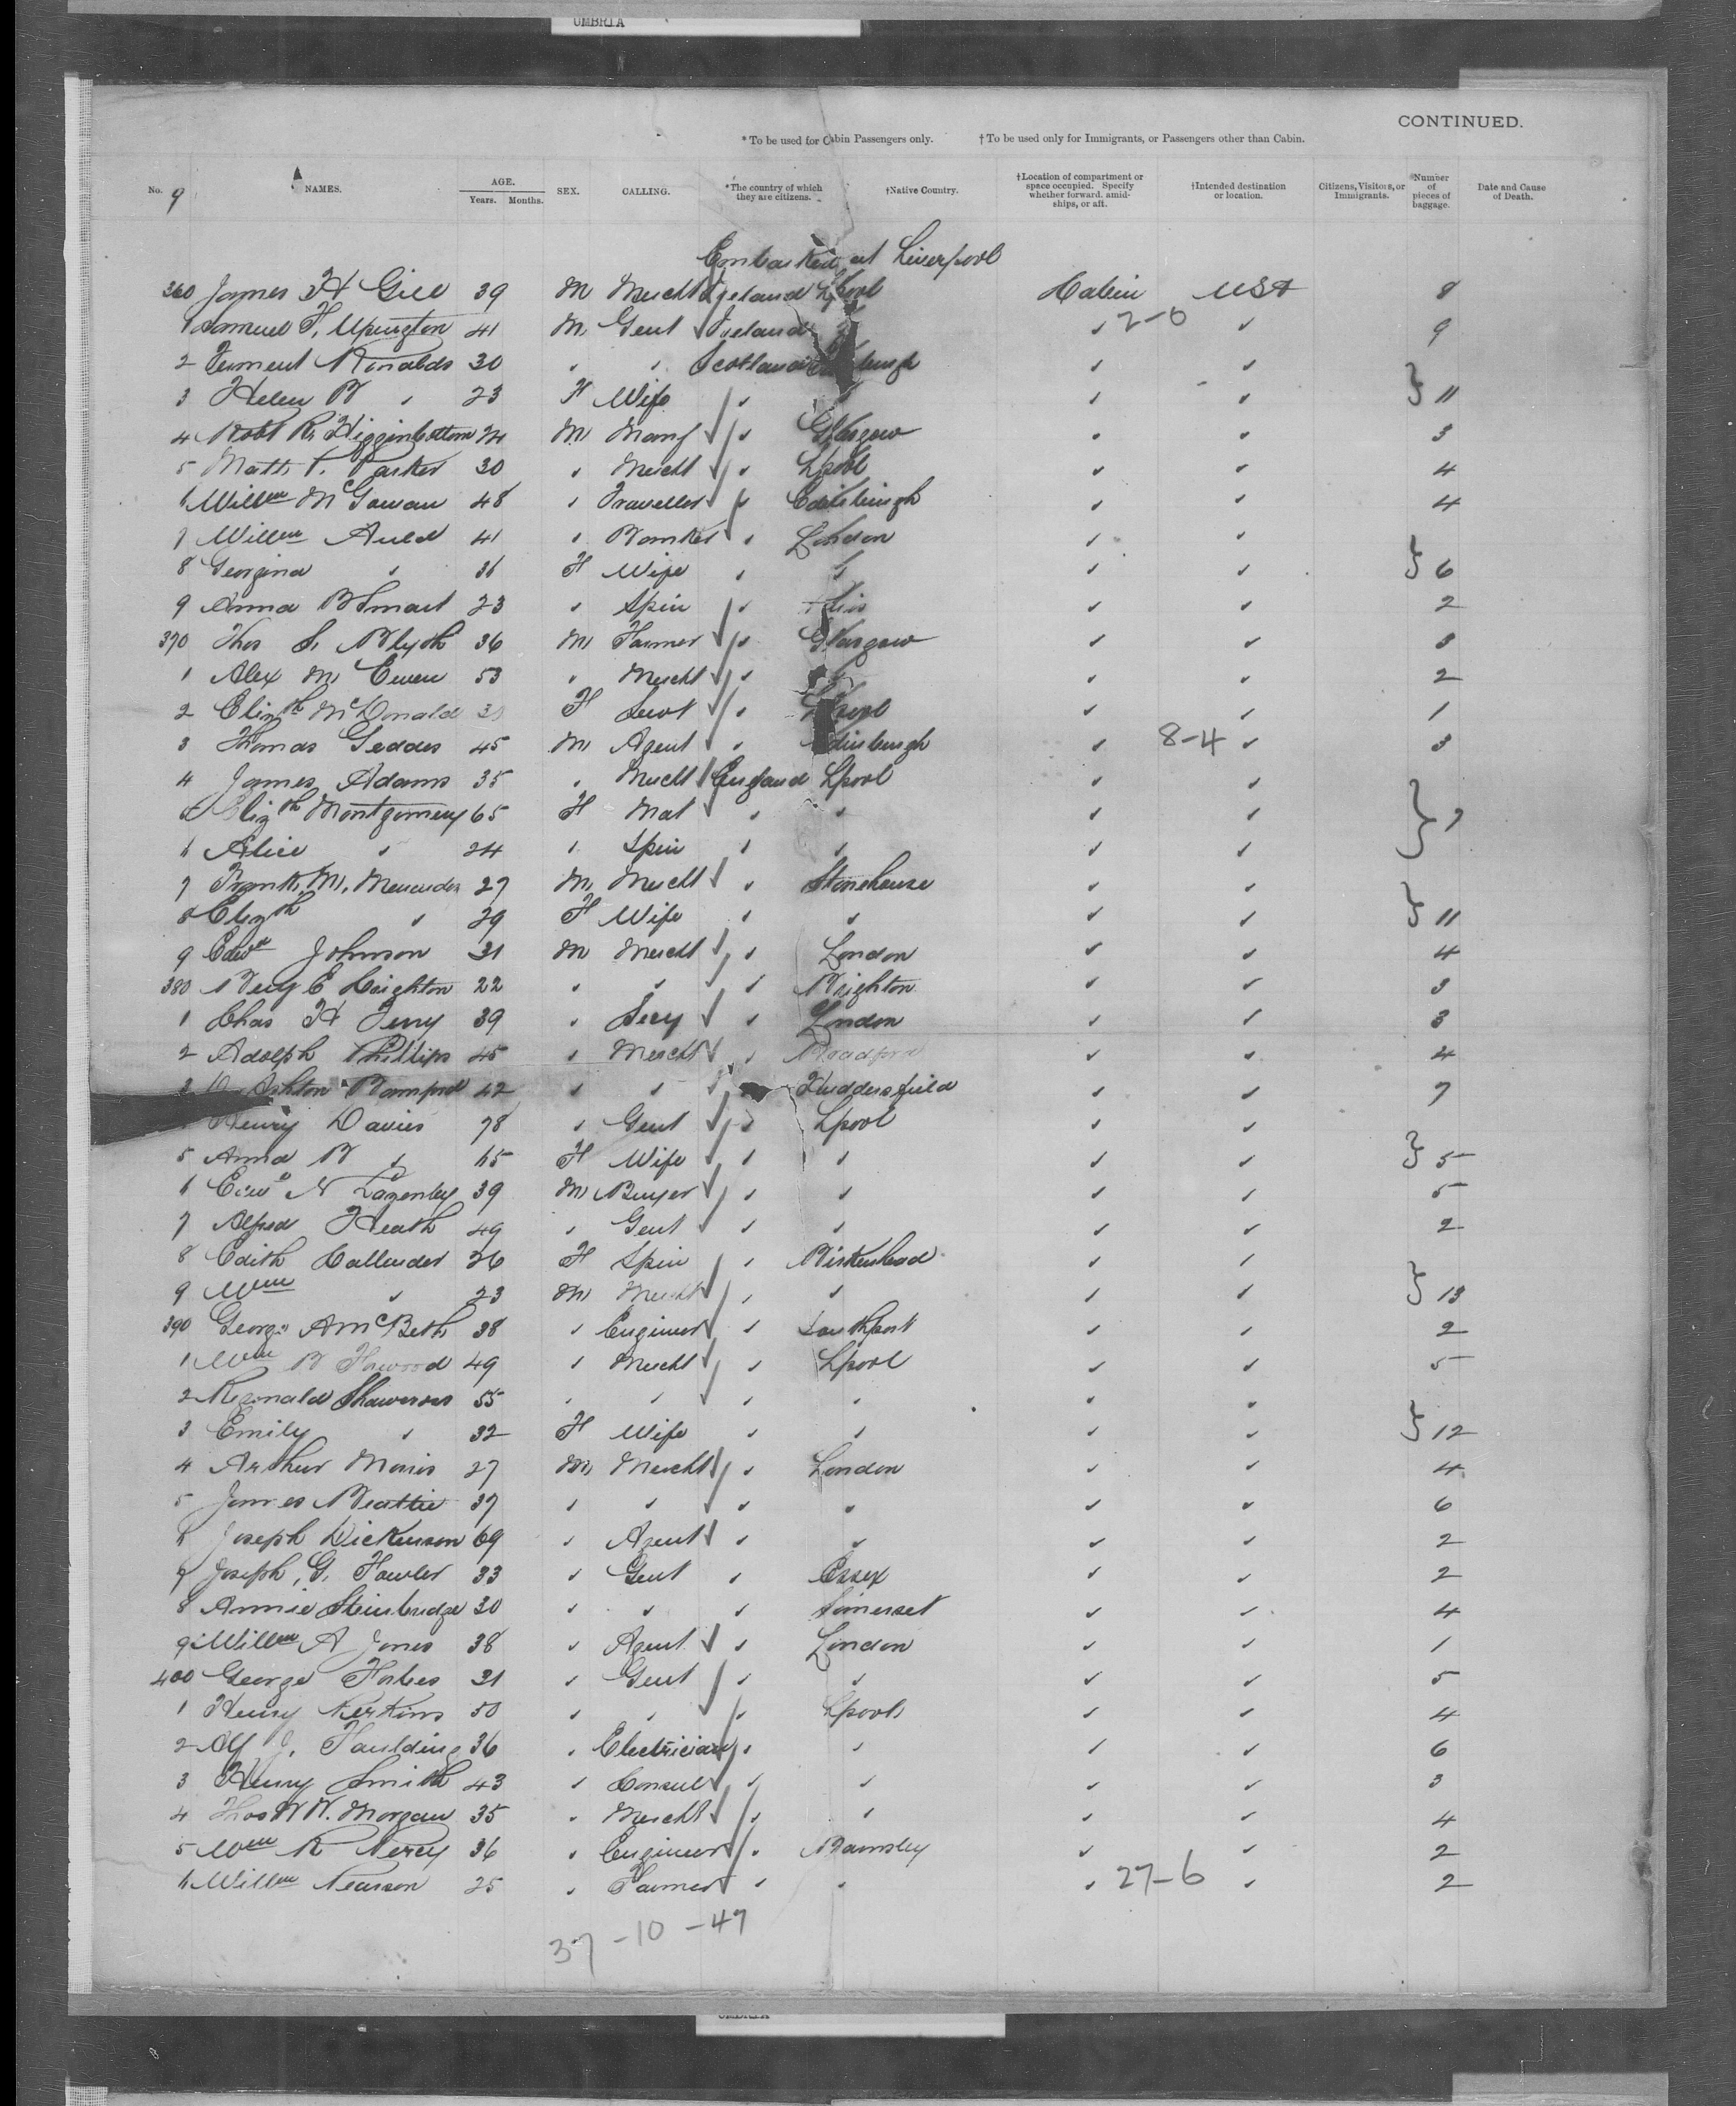 UMBRIA
CONTINUED.
* To be used for Cabin Passengers only. † To be used only for Immigrants, or Passengers other than Cabin.
No. 9 NAMES. AGE. Years. Months. SEX. CALLING. *The country of which they are citizens. †Native Country. †Location of compartment or space occupied. Specify whether forward, amidships, or aft. †Intended destination or location. Citizens, Visitors, or Immigrants. Number of pieces of baggage. Date and Cause of Death.
Embarked at Liverpool
360 James H Gill 39 M Mercht Ireland Lpool Cabin USA 8
1 Samuel T. Upington 41 M Gent Ireland 2-0 9
2 Ronalds 30 " " Scotland
3 Helen B " 23 F Wife " } 11
4 Robt R. Higginbottom 24 M Manf " Glasgow 3
5 Matt. T. Parker 30 " Mercht " Lpool 4
6 Willm McGowan 48 " Traveller " Edinburgh 4
7 Willm Auld 41 " Banker " London
8 Georgina " 36 F Wife " " } 6
9 Anna B Smart 23 " Spin " 2
370 Thos S. Blyth 36 M Farmer " Glasgow 3
1 Alex Mc Ewen 53 " Mercht " 2
2 Elizth McDonald F Servt " Lpool 1
3 Thomas Geddes 45 M Agent " Edinburgh 8-4 3
4 James Adams 35 " Mercht England Lpool
5 Elizth Montgomery 65 F Mat " " } 7
6 Alice " 24 " Spin " "
7 Frank M. 27 M Mercht " Stonehouse
8 Elizth " 29 F Wife " " } 11
9 Edwd Johnson 31 M Mercht " London 4
380 Benj E Leighton 22 " " " Brighton 3
1 Chas H Terry 39 " Secy " London 3
2 Adolph Phillips 45 " Mercht " Bradford 4
3 Ashton Bamford 42 " " " Huddersfield 7
Henry Davies 78 " Gent " Lpool
5 Anna B " 65 F Wife " " } 5
6 Edwd N Lazenby 39 M Buyer " " 5
7 Alfred Heath 49 " Gent " " 2
8 Edith Callender 26 F Spin " Birkenhead
9 Wm " 23 M Mercht " " } 13
390 George A McBeth 38 " Engineer " Southport 2
1 Wm B Horwood 49 " Mercht " Lpool 5
2 Reginald Shawcross 55 " " " "
3 Emily " 32 F Wife " " } 12
4 Arthur Morris 27 M Mercht " London 4
5 James Beattie 37 " " " " 6
6 Joseph Dickinson 69 " Agent " " 2
7 Joseph G. Fowler 33 " Gent " Essex 2
8 Annie Steinbridge 30 " " " Somerset 4
9 Willm A Jones 38 " Agent " London 1
400 George Forbes 31 " Gent " " 5
1 Henry Perkins 50 " " " Lpool 4
2 Alf J. Faulding 36 " Electrician " " 6
3 Henry Smith 43 " Consul " " 3
4 Thos W W. Morgan 35 " Mercht " " 4
5 Wm R Percy 36 " Engineer " Barnsley 2
6 Willm Pearson 25 " Farmer " " 27-6 2
37-10-47
UMBRIA